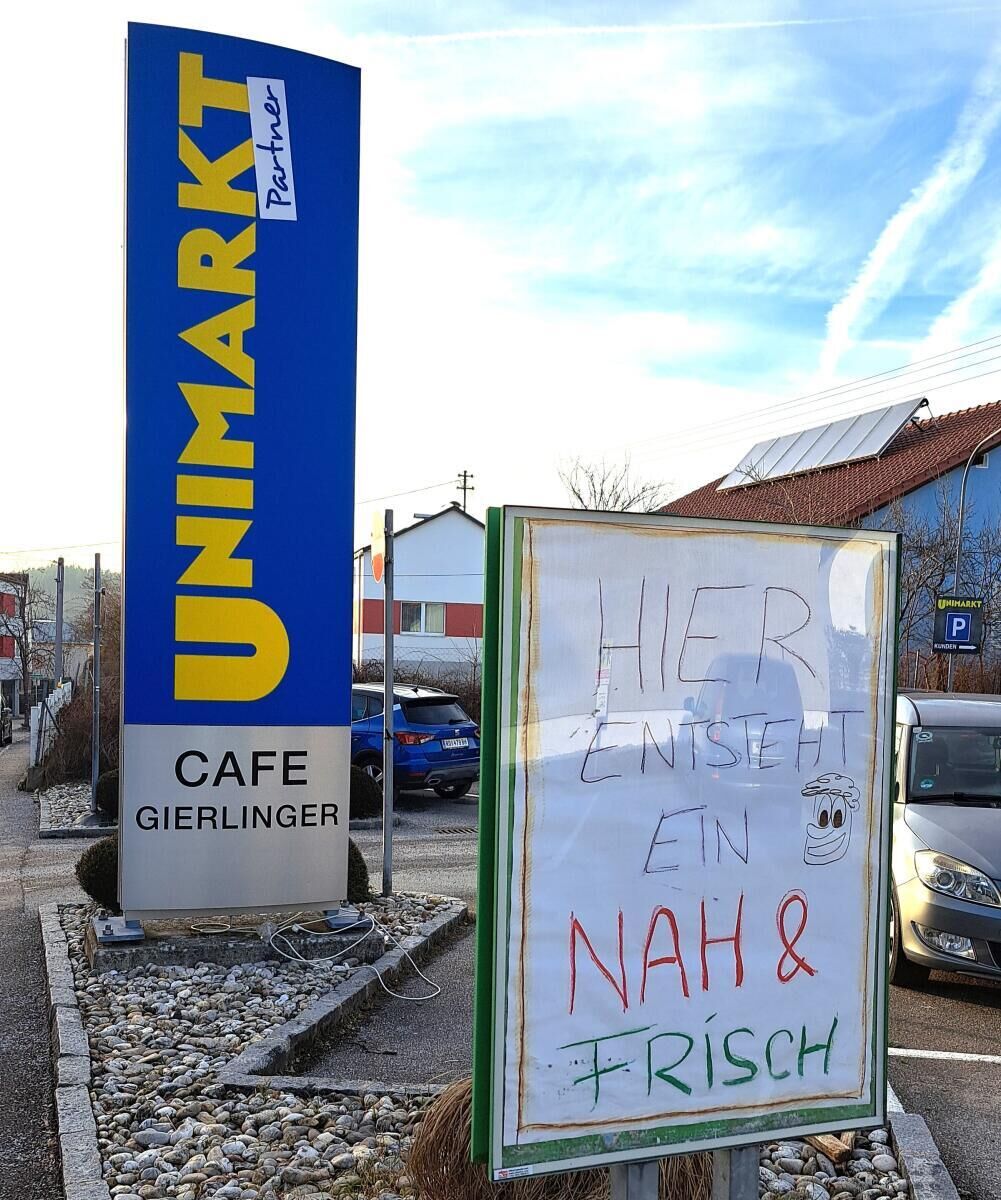 UNIMARKT
Partner
CAFE
GIERLINGER
HIER
ENTSTEHT
EIN
NAH &
FRISCH
UNIMARKT
P
KUNDEN